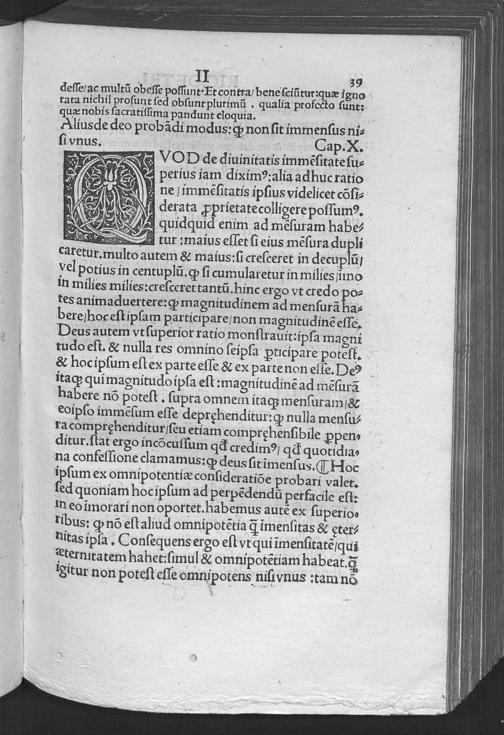 II
39
desse/ac multū obesse possunt. Et contra/bene sciūtur:quæ igno
rata nichil prosunt sed obsunt plurimū. qualia profecto sunt:
quæ nobis sacratissima pandunt eloquia.
Alius de deo probādi modus: ꝙ non sit immensus ni-
si vnus. Cap.X.
QVOD de diuinitatis immēsitate su-
perius iam diximꝰ:alia adhuc ratio
ne/immēsitatis ipsius videlicet cōsi-
derata ꝓprietate colligere possumꝰ.
quidquid enim ad mēsuram habe-
tur:maius esset si eius mēsura dupli
caretur.multo autem & maius:si cresceret in decuplū/
vel potius in centuplū. ꝙ si cumularetur in milies/imo
in milies milies:cresceret tantū. hinc ergo vt credo po-
tes animaduertere: ꝙ magnitudinem ad mensurā ha-
bere/hoc est ipsam participare/non magnitudinē esse.
Deus autem vt superior ratio monstrauit:ipsa magni
tudo est. & nulla res omnino seipsa ꝑticipare potest.
& hoc ipsum est ex parte esse & ex parte non esse. Deꝰ
itaqꝫ qui magnitudo ipsa est:magnitudinē ad mēsurā
habere nō potest. supra omnem itaqꝫ mensuram/&
eo ipso immēsum esse depręhenditur: ꝙ nulla mensu-
ra compręhenditur/seu etiam compręhensibile ꝑpen-
ditur. stat ergo incōcussum qd̄ credimꝰ/ qd̄ quotidia-
na confessione clamamus: ꝙ deus sit imensus. ⸿Hoc
ipsum ex omnipotentiæ consideratiōe probari valet.
sed quoniam hoc ipsum ad perpēdendū perfacile est:
in eo īmorari non oportet. habemus autē ex superio-
ribus: ꝙ nō est aliud omnipotētia q̄ imensitas & ęter-
nitas ipsa. Consequens ergo est vt qui īmensitatē/qui
æternitatem habet:simul & omnipotētiam habeat. q̄
igitur non potest esse omnipotens nisi vnus :tam nō